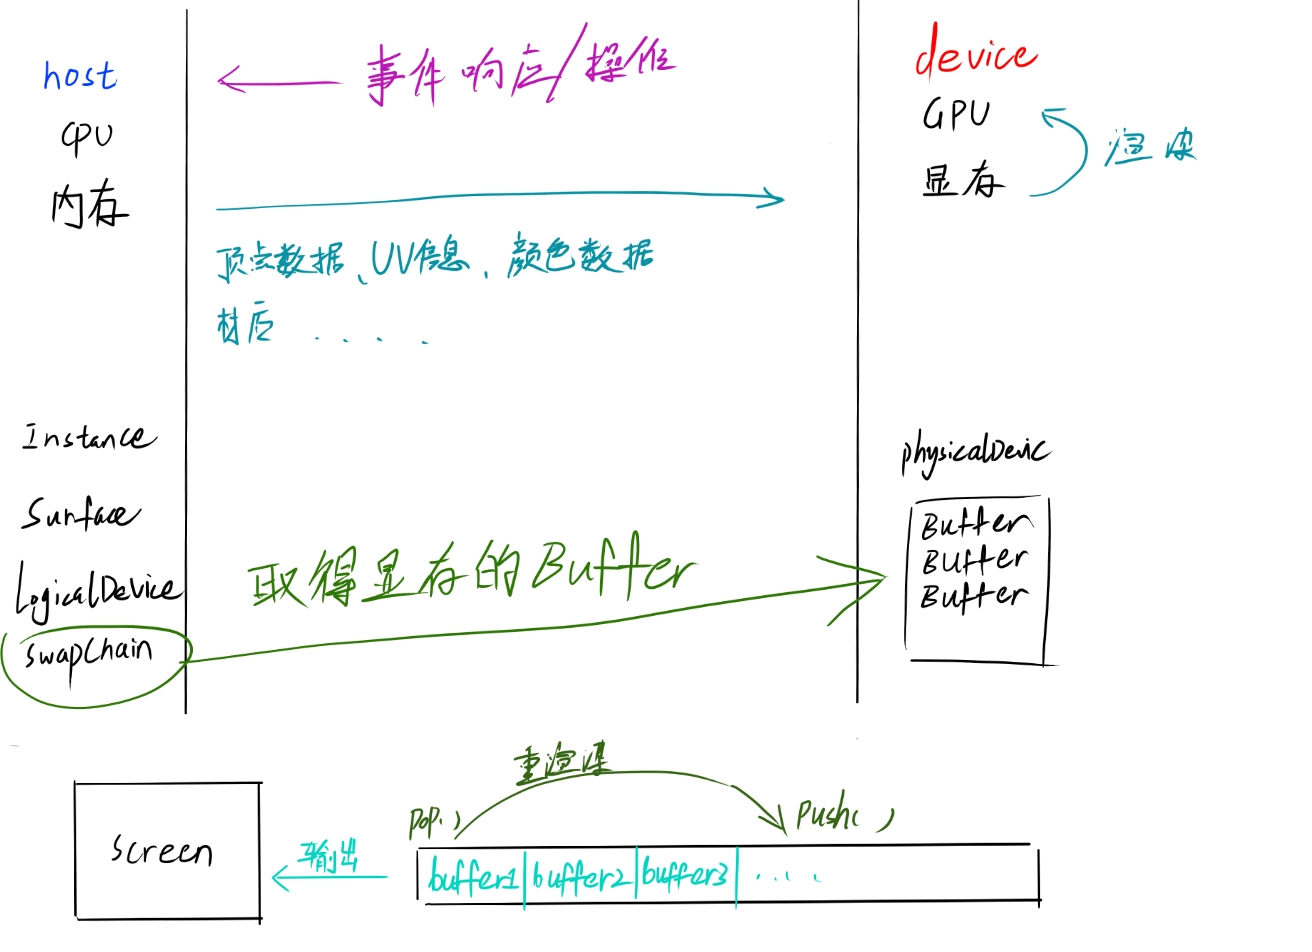 host
CPU
内存
事件响应/操作
device
GPU
显存
渲染
顶点数据、UV信息、颜色数据
材质 . . . .
Instance
Surface
LogicalDevice
SwapChain
取得显存的Buffer
physicalDevic
Buffer
Buffer
Buffer
重渲染
POP()
Push()
Screen
输出
buffer1 buffer2 buffer3 ....